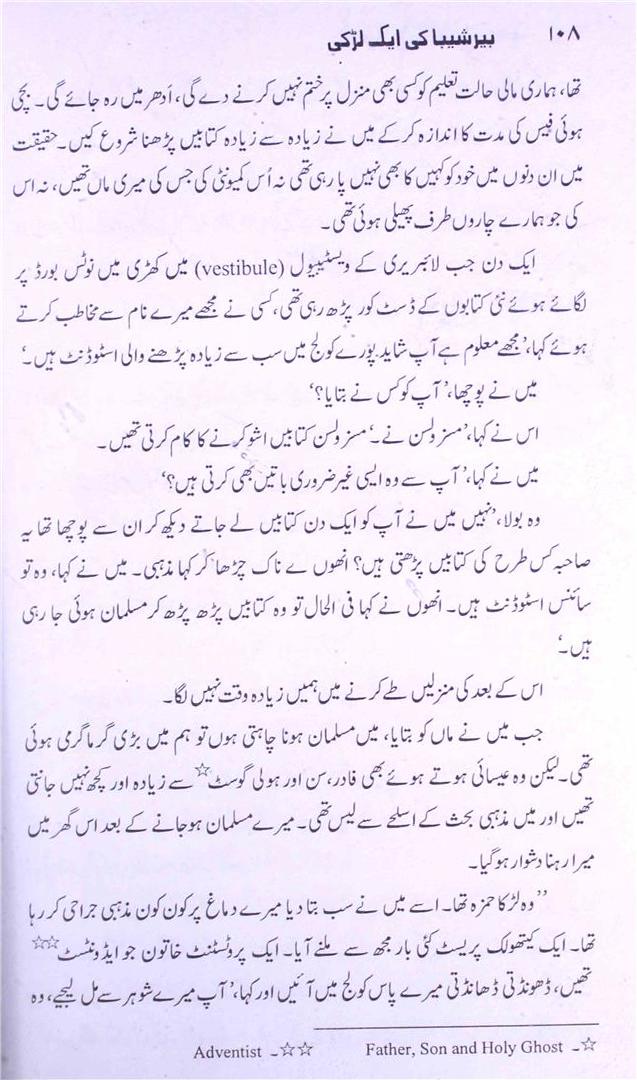 ۱۰۸ بیر شیبا کی ایک لڑکی
تھا، ہماری مالی حالت تعلیم کو کسی بھی منزل پر ختم نہیں کرنے دے گی، اُدھر میں رہ جائے گی۔ بچی
ہوئی فیس کی مدت کا اندازہ کر کے میں نے زیادہ سے زیادہ کتابیں پڑھنا شروع کیں۔ حقیقت
میں ان دنوں میں خود کو کہیں کا بھی نہیں پا رہی تھی نہ اُس کمیونٹی کی جس کی میری ماں تھیں، نہ اس
کی جو ہمارے چاروں طرف پھیلی ہوئی تھی۔
ایک دن جب لائبریری کے ویسٹیبیول (vestibule) میں کھڑی میں نوٹس بورڈ پر
لگائے ہوئے نئی کتابوں کے ڈسٹ کور پڑھ رہی تھی، کسی نے مجھے میرے نام سے مخاطب کرتے
ہوئے کہا، ’مجھے معلوم ہے آپ شاید پورے کولج میں سب سے زیادہ پڑھنے والی اسٹوڈنٹ ہیں۔‘
میں نے پوچھا، ’آپ کو کس نے بتایا؟‘
اس نے کہا، ’مسز ولسن نے۔‘ مسز ولسن کتابیں اشو کرنے کا کام کرتی تھیں۔
میں نے کہا، ’آپ سے وہ ایسی غیر ضروری باتیں بھی کرتی ہیں؟‘
وہ بولا، ’نہیں میں نے آپ کو ایک دن کتابیں لے جاتے دیکھ کر ان سے پوچھا تھا یہ
صاحبہ کس طرح کی کتابیں پڑھتی ہیں؟ انھوں نے ناک چڑھا کر کہا مذہبی۔ میں نے کہا، وہ تو
سائنس اسٹوڈنٹ ہیں۔ انھوں نے کہا فی الحال تو وہ کتابیں پڑھ پڑھ کر مسلمان ہوئی جا رہی
ہیں۔‘
اس کے بعد کی منزلیں طے کرنے میں ہمیں زیادہ وقت نہیں لگا۔
جب میں نے ماں کو بتایا، میں مسلمان ہونا چاہتی ہوں تو ہم میں بڑی گرما گرمی ہوئی
تھی۔ لیکن وہ عیسائی ہوتے ہوئے بھی فادر، سن اور ہولی گوسٹ☆ سے زیادہ اور کچھ نہیں جانتی
تھیں اور میں مذہبی بحث کے اسلحے سے لیس تھی۔ میرے مسلمان ہو جانے کے بعد اس گھر میں
میرا رہنا دشوار ہو گیا۔
’’وہ لڑکا حمزہ تھا۔ اسے میں نے سب بتا دیا میرے دماغ پر کون کون مذہبی جراحی کر رہا
تھا۔ ایک کیتھولک پریسٹ کئی بار مجھ سے ملنے آیا۔ ایک پروٹسٹنٹ خاتون جو ایڈونٹسٹ☆☆
تھیں، ڈھونڈتی ڈھانڈتی میرے پاس کولج میں آئیں اور کہا، ’آپ میرے شوہر سے مل لیجیے، وہ
☆۔ Father, Son and Holy Ghost ☆☆۔ Adventist